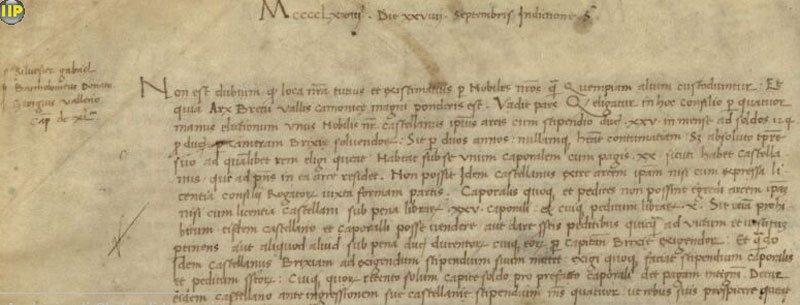 IIP
Mcccclxxiiij. Die xxviiij. Septembris Indictione
Silvester gabriel
Bartholomeus Donato
Georgius Vallerio
Cap. de xl.
Non est dubium q loca nra tutius et existimatius p Nobiles nros q Quempiam alium custodiuntur. Et
quia Arx Breni vallis canonice magni ponderis est. Vadit pars Q eligatur in hoc consilio p quatuor
manus electionum unus Nobilis nr Castellanus ipius arcis cum stipendio duc. xxv in mense ad soldos
p duc. cameram Brixie solvendos. Sit p duos annos: nullamq hent contumatiam Si absoluto tpre
suo ad qualibet rem eligi queat. Habeat sub se unum caporalem cum pagis. xx. sicuti habet Castella
nus, que ad pns in ea arce residet. Non possit Idem Castellanus exire arcem ipam nisi cum expressa li
centia consilij Rogator iuxta formam partis. Caporalis quoq et pedites non possint egredi arcem ipaz
nisi cum licentia Castellani sub pena librar. xxv caporali. et cuiq peditum librar. x. Sit etia prohi
bitum eisdem castellano et caporali posse vendere aut dare ipsis peditibus quicq ad victum et vestitus
ptinens aut aliquod aliud sub pena duc ducentor cuiq eor p capitan Brixie exigendor. Et qndo
Idem Castellanus Brixiam ad exigendum stipendium suum mittet exigi quoq faciat stipendium caporalis
et peditum sstor: Cuiq quor retento solum capite soldo pro prefato caporali det pagam integra. Detur
eidem castellano ante ingressionem sue castellanie stipendium mensium quatuor ut rebus suis prospicere queat